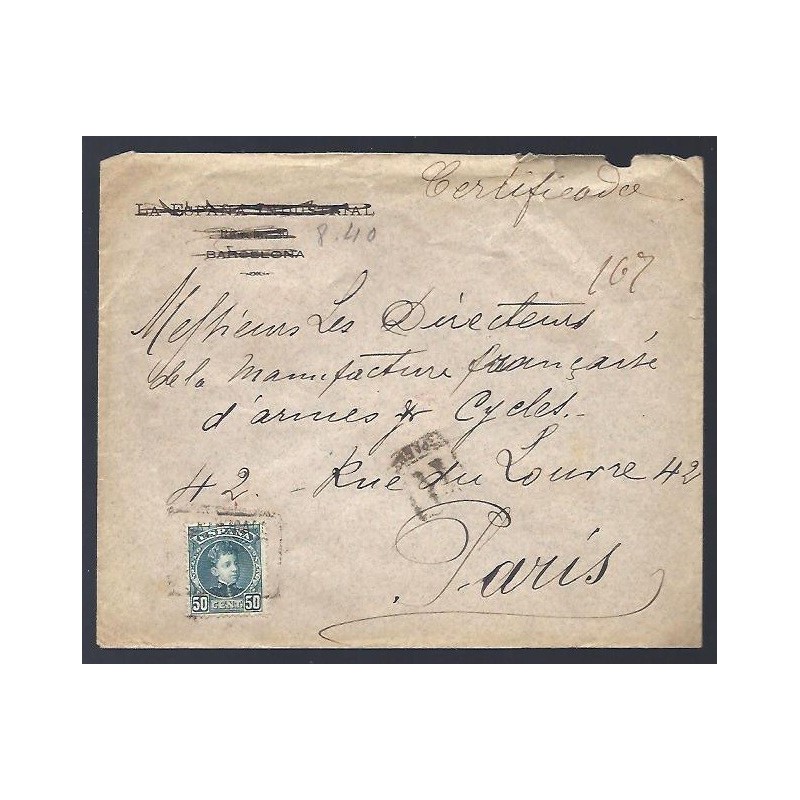 Certificado
LA ESPAÑA INDUSTRIAL
BARCELONA
8.40
167
Messieurs Les Directeurs
de la Manufacture française
d'armes & Cycles.
42. - Rue du Louvre 42
Paris
ESPAÑA
50 CENT. 50